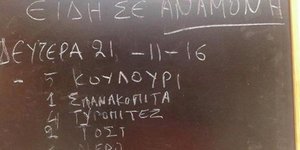 ΕΙΔΗ ΣΕ ΑΝΑΜΟΝΗ
ΔΕΥΤΕΡΑ 21-11-16
- 5 ΚΟΥΛΟΥΡΙ
1 ΣΠΑΝΑΚΟΠΙΤΑ
4 ΤΥΡΟΠΙΤΕΣ
2 ΤΟΣΤ
ΝΕΡΟ